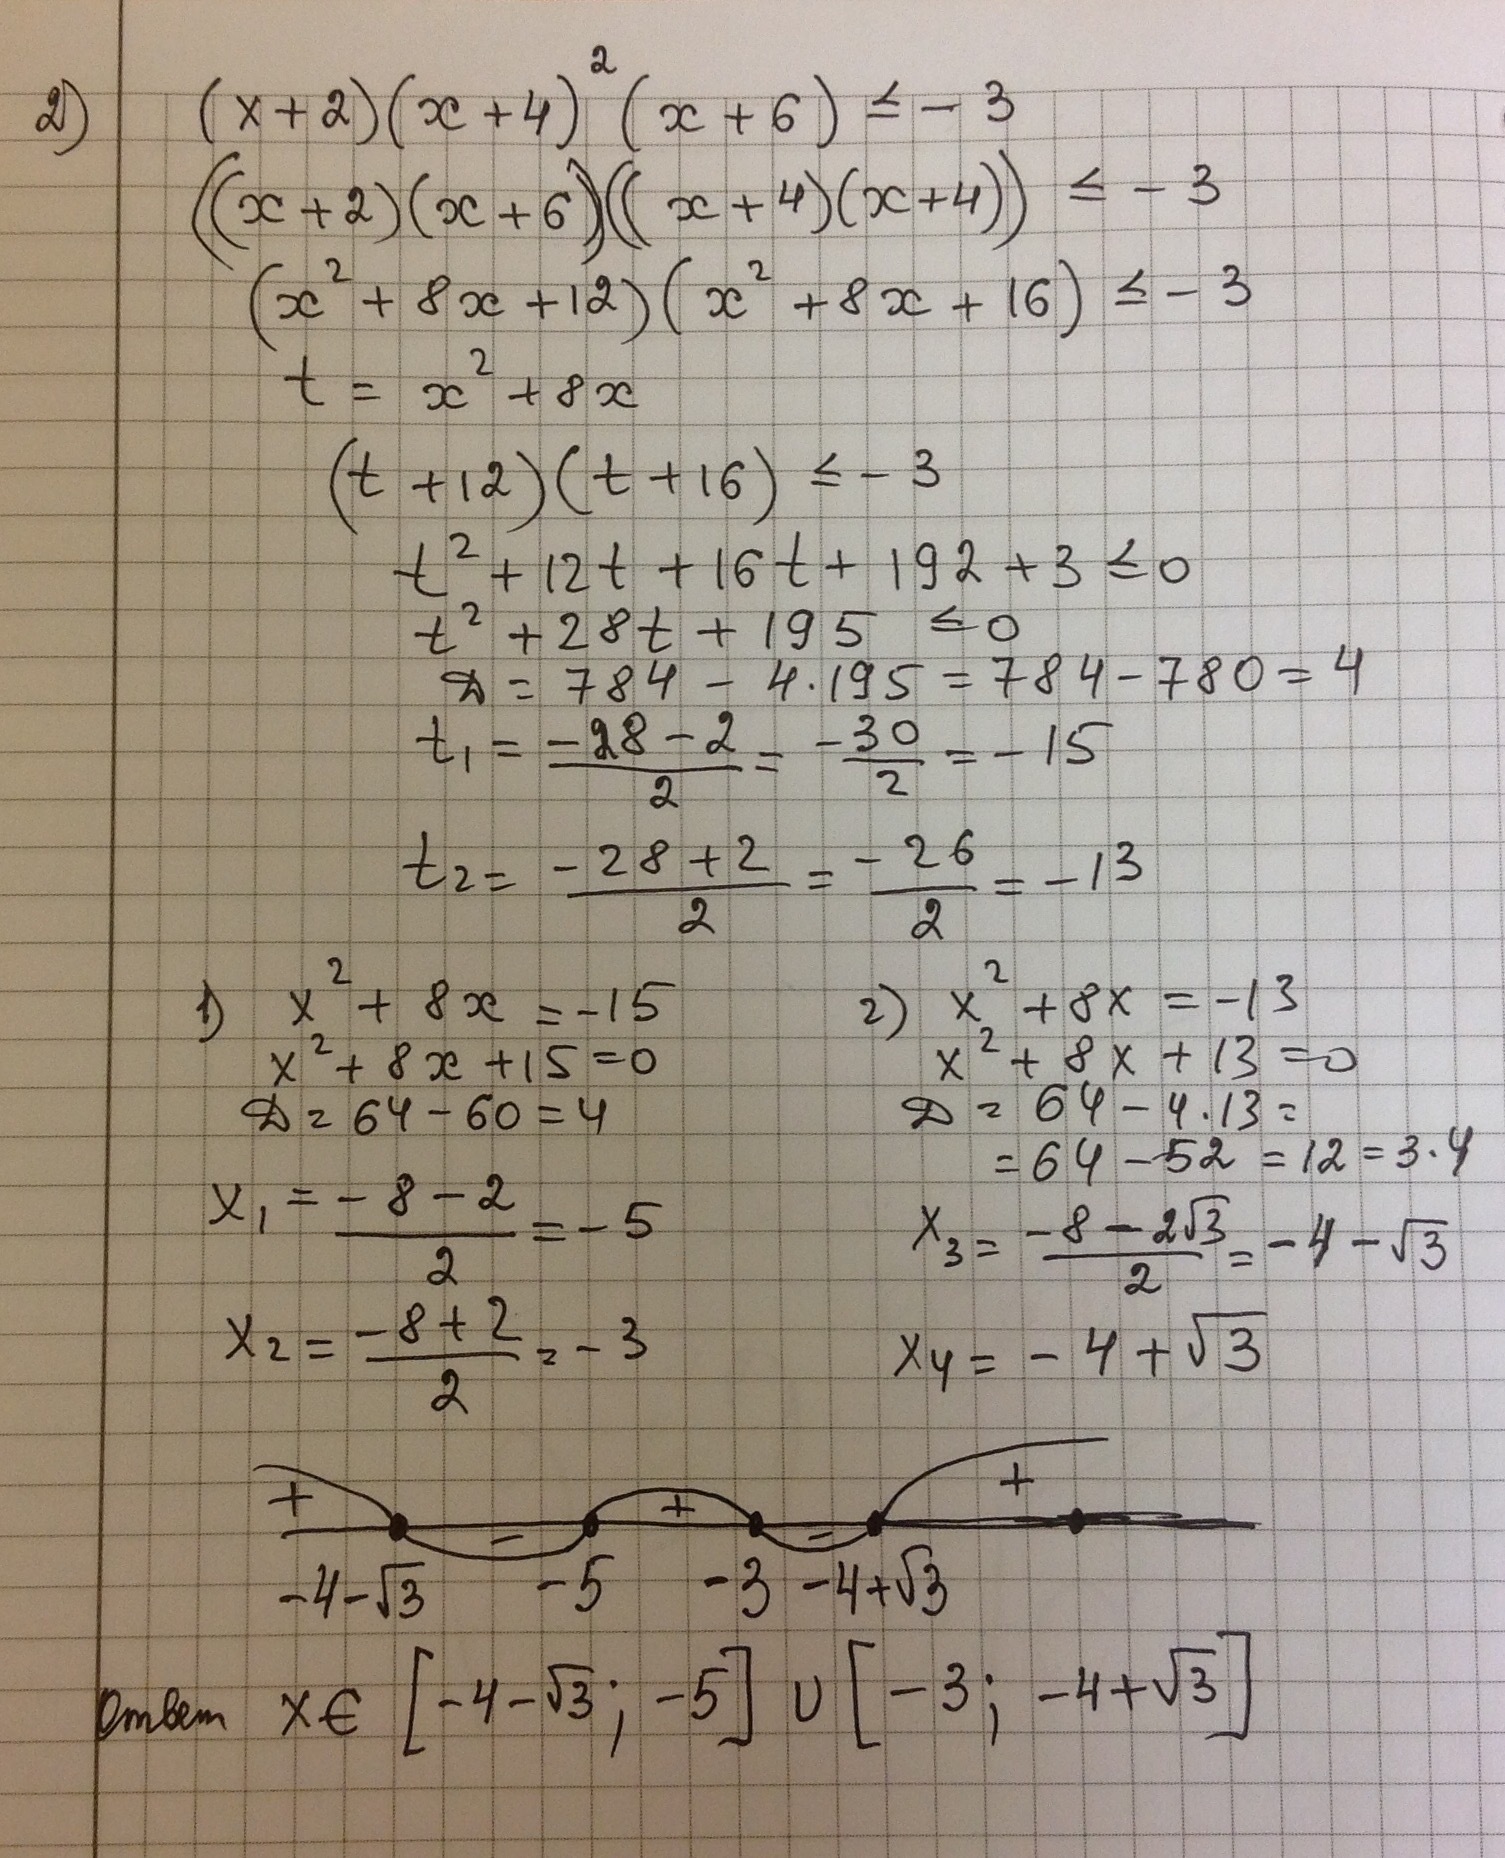 2) (x+2)(x+4)² (x+6) ≤ -3
((x+2)(x+6))((x+4)(x+4)) ≤ -3
(x² + 8x +12)(x² +8x + 16) ≤ -3
t = x² +8x
(t +12)(t +16) ≤ -3
t² +12t +16t + 192 +3 ≤0
t² +28t + 195 ≤0
D = 784 - 4·195 = 784-780 = 4
t₁ = (-28-2)/2 = -30/2 = -15
t₂ = (-28+2)/2 = -26/2 = -13
1) x² + 8x = -15
x² + 8x +15 =0
D = 64-60 = 4
x₁ = (-8-2)/2 = -5
x₂ = (-8+2)/2 = -3
2) x² +8x = -13
x² + 8x + 13 =0
D = 64 - 4·13 =
= 64 - 52 = 12 = 3·4
x₃ = (-8-2√3)/2 = -4-√3
x₄ = -4+√3
+ - + - +
-4-√3 -5 -3 -4+√3
Ответ x∈ [-4-√3; -5] ∪ [-3; -4+√3]